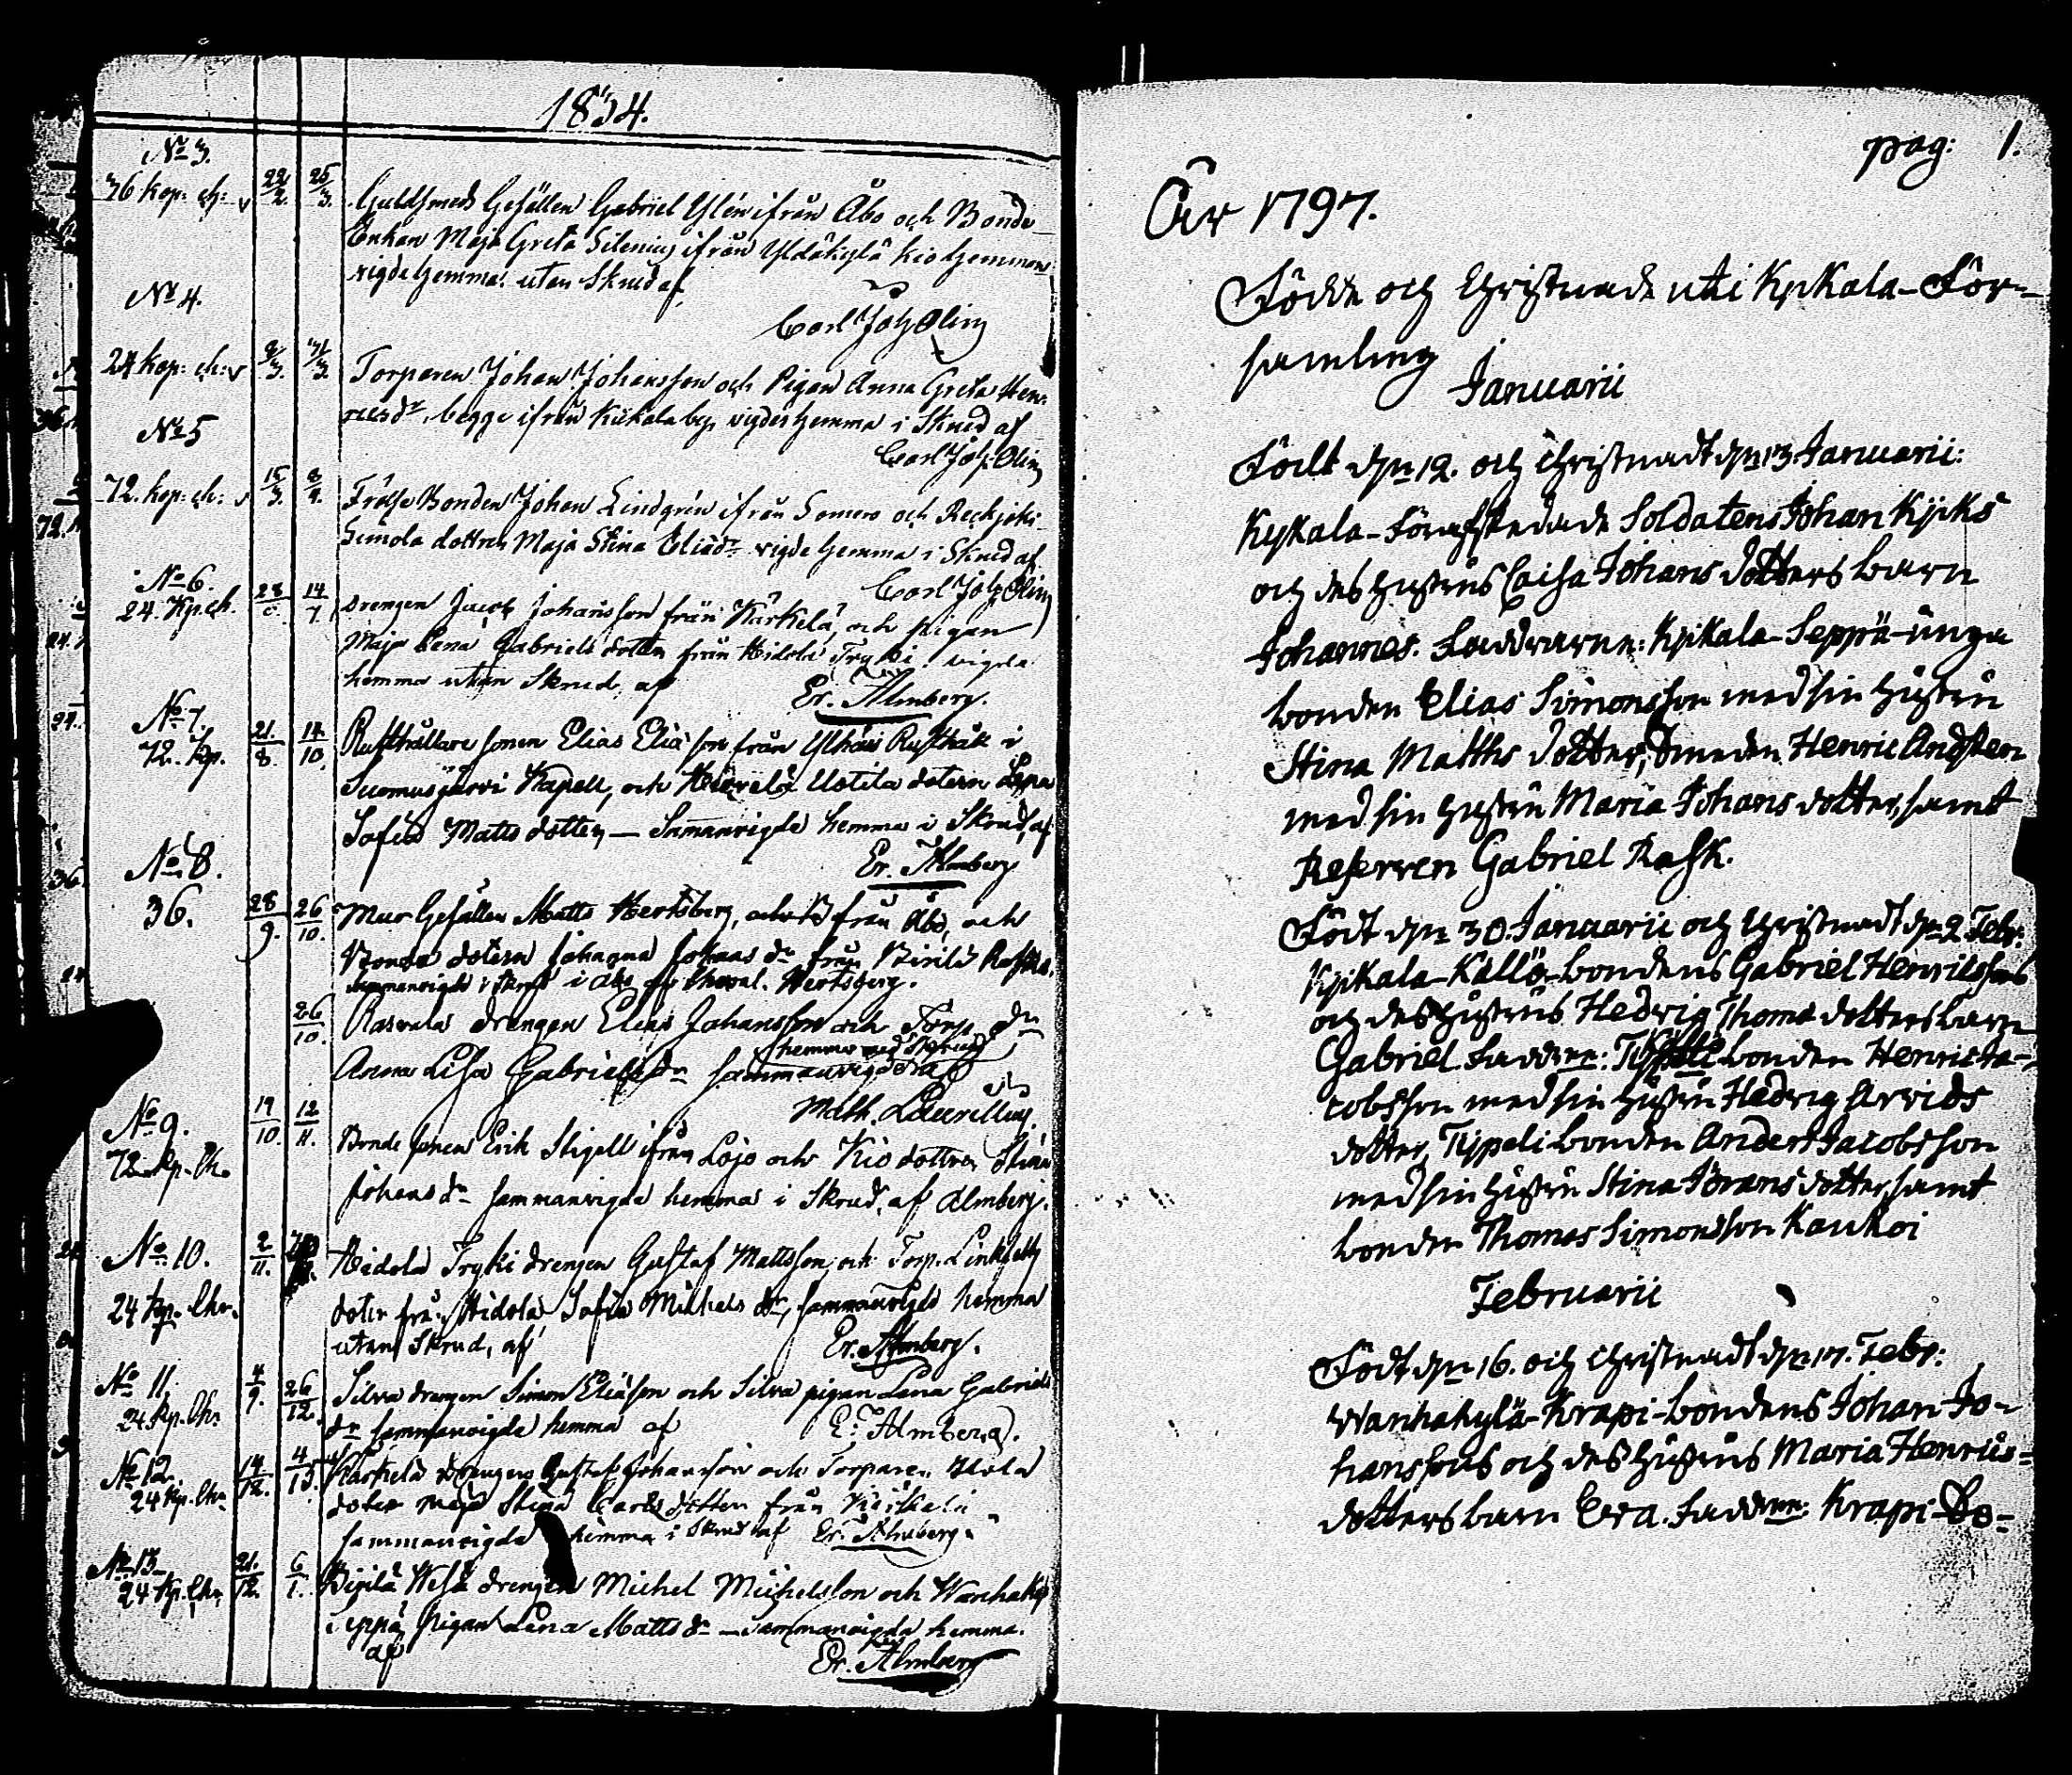 1834.
No 3.
36 kop: ch: 22/2. 25/3. Guldsmeds Gesällen Gabriel Ylén ifrån Åbo och Bonde
Enkan Maja Greta Silenius ifrån Yldäkylä Kio hemmans
vigde hemma utan Skrud af
Carl Joh Olin
No 4.
24 kop: ch: 9/3. /3. Torparen Johan Johansson och Pigan Anna Greta Hen-
ricsdr begge ifrån Kiikala by, vigdes hemma i Skrud af
Carl Joh Olin
No 5
72. kop: ch: 15/3. 8/4. Frälse Bonden Johan Lindgrén ifrån Somero och Reckjoki
Simola dottren Maja Stina Eliædr vigde hemma i Skrud af
Carl Joh Olin
No 6.
24. Kp. ch. 28/ 14/7. drengen Jacob Johansson från Kärkelä, och pigan
Maja Lena Gabriels dotter från Hidola Tryki vigda
hemma utan Skrud af
Er. Almberg.
No 7.
72. Kp. 21./8. 14/10. Rusthållare sonen Elias Eliæson från Rusthåll i
Suomusjärvi Kapell, och Ustila dotern
Sofia Matts dotter, — Samanvigde hemma i Skrud, af
Er. Almberg
No 8.
36. 28/9. 26/10. Mur Gesällen Matts Hertsberg, från Åbo, och
Bonde dotern Johanna Johans dr från
sammanvigde i Skrud i Åbo af Hertsberg.
26/10. Rasvala drengen Elias Johansson och Torp. dr
hemma med Skrud
Anna Lisa Gabriels dr sammanvigde af
Math. Laurellius.
No 9.
72 Kp. Ch. 19/10. 12/11. Bonde sonen Erik Stigell ifrån Lojo och Kio dottren Stina
Johans dr sammanvigde hemma i Skrud, af Almberg.
No 10.
24 kp. Chr. 2/11. Hidola Tryki drengen Gustaf Mattsson, och Torp.
doter från Hidola Sofia Michels dr, sammanvigde hemma
utan Skrud, af Er. Almberg.
No 11.
24 Kp. Chr 4/9. 26/12. Silva drengen Simon Eliæson och Silva pigan Lena Gabriels
dr sammanvigde hemma af E. Almberg.
No 12.
24 Kp. Chr 14/12. 4/ Kärkelä drengen Gustaf Johansson och Torpare
doter Maja Stina Carls dotter från Kärkelä
sammanvigde hemma i Skrud af Er. Almberg.
No 13
24 Kp. Chr 21./12. 6/1. Pigilä Wesa drengen Michel Michelsson och Wanhakylä
Seppä Pigan Lena Matts dr — sammanvigda hemma.
af
Er. Almberg
pag: 1.
År 1797.
Födde och Christnade uti Kykala-För-
samling
Januarii
Födt dn 12. och Christnadt dn 13 Januarii:
Kykala-Förafskedade Soldatens Johan Kycks
och des Hustrus Caisa Johans dotters barn
Johannes. Faddrarne: Kykala-Seppä-unga
bonden Elias Simonsson med sin Hustru
Stina Matths dotter, Smeden Henric Andsten
med sin Hustru Maria Johans dotter, samt
Reserven Gabriel Rask.
Födt dn 30. Januarii och Christnadt dn 2. Febr:
Kykala-Källö-bondens Gabriel Henrikssons
och des Hustrus Hedvig Thomæ dotters barn
Gabriel. Faddrne: bonden Henric Ja-
cobsson med sin Hustru Hedvig Arvids
dotter, Typpeli bonden Anders Jacobsson
med sin Hustru Stina Görans dotter, samt
bonden Thomas Simonsson Kaukoi
Februarii
Födt dn 16. och Christnadt dn 17. Febr:
Wanhakylä-Krapi-bondens Johan Jo-
hanssons och des Hustrus Maria Henrics-
dotters barn Eva. Faddrne: Krapi-Bo-